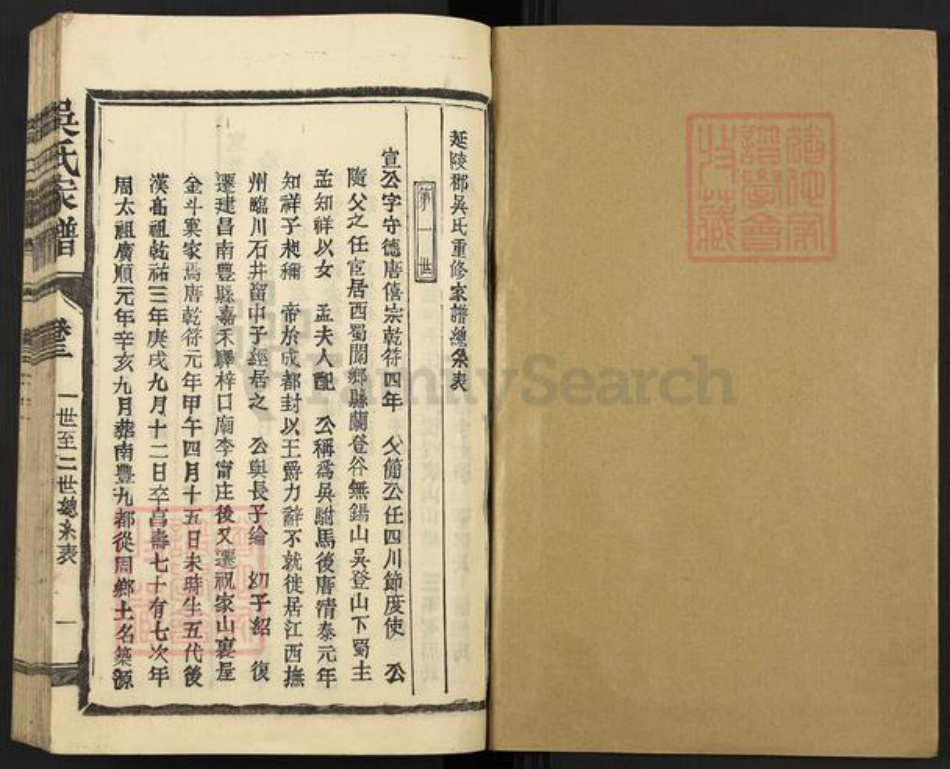 延陵郡吳氏重修家譜總系表
第一世
宣公字守德唐僖宗乾符四年　父簡公任四川節度使　公
隨父之任宦居西蜀閬鄉縣蘭登谷無錫山吳登山下蜀主
孟知祥以女　孟夫人配　公稱爲吳駙馬後唐清泰元年
知祥子昶稱　帝於成都封以王爵力辭不就徙居江西撫
州臨川石井留中子經居之　公與長子綸　幼子紹　復
遷建昌南豐縣嘉禾驛梓口廟李甯庄後又遷祝家山裏屋
金斗窠家焉唐乾符元年甲午四月十五日未時生五代後
漢高祖乾祐三年庚戌九月十二日卒亯壽七十有七次年
周太祖廣順元年辛亥九月葬南豐九都從周鄉土名築源
吳氏家譜
卷三
一世至二世總系表
一
FamilySearch